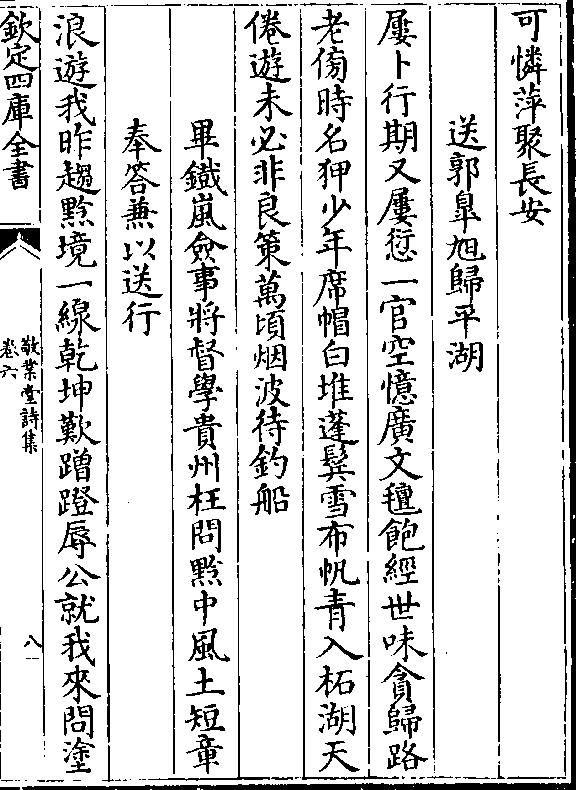 可憐萍聚長安
送郭臯旭歸平湖
屢卜行期又屢愆一官空憶廣文氊飽經世味貪歸路
老傍時名狎少年席帽白堆蓬鬂雪布帆青入柘湖天
倦遊未必非良策萬頃烟波待釣船
畢鐵嵐僉事將督學貴州枉問黔中風土短章
奉答兼以送行
浪遊我昨趨黔境一線乾坤歎蹭蹬辱公就我來問塗
欽定四庫全書
敬業堂詩集
卷六
八